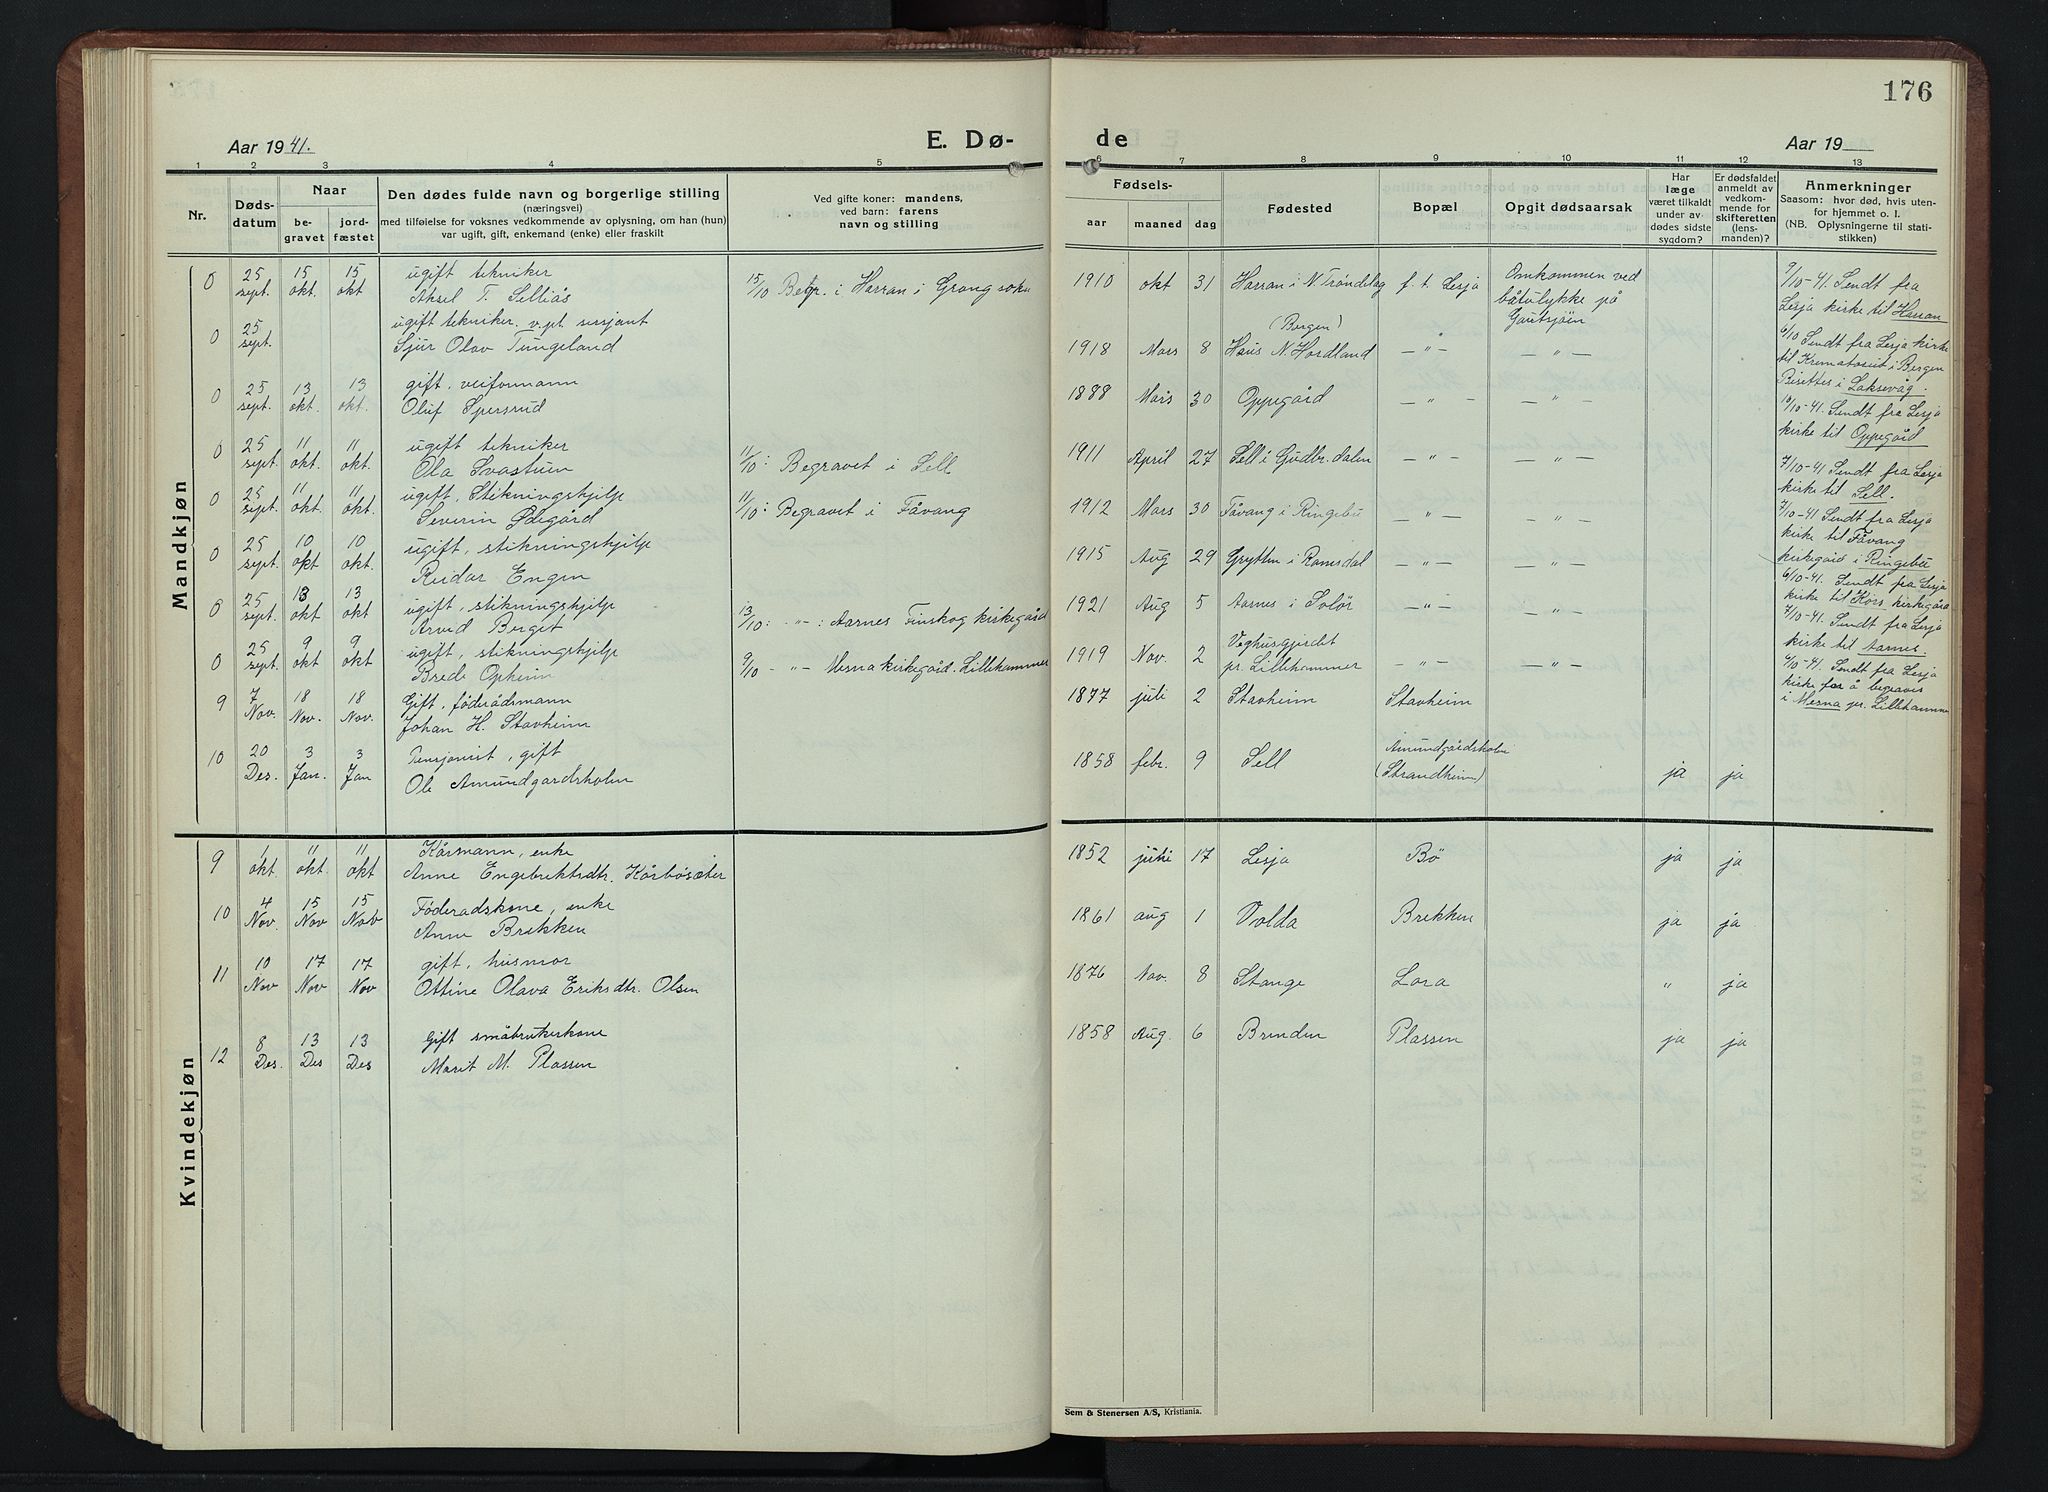 176
Aar 1941.
E. Dø-
de
Aar 19
1 2 3 4 5 6 7 8 9 10 11 12 13
Nr.
Døds-
datum
Naar
be-
gravet
jord-
fæstet
Den dødes fulde navn og borgerlige stilling
(næringsvei)
med tilføielse for voksnes vedkommende av oplysning, om han (hun)
var ugift, gift, enkemand (enke) eller fraskilt
Ved gifte koner: mandens,
ved barn: farens
navn og stilling
Fødsels-
aar
maaned
dag
Fødested
Bopæl
Opgit dødsaarsak
Har
læge
været tilkaldt
under av-
dødes sidste
sygdom?
Er dødsfaldet
anmeldt av
vedkom-
mende for
skifteretten
(lens-
manden)?
Anmerkninger
Saasom: hvor død, hvis uten-
for hjemmet o. l.
(NB. Oplysningerne til stati-
stikken)
Mandkjøn
0 25 sept. 15 okt. 15 okt ugift tekniker
Aksel T. Selliås 15/10 Begr. i Harran i Grong sokn 1910 okt 31 Harran i N. Trøndelag f. t. Lesja Omkommen ved
båtulykke på
Gautsjøen
9/10-41. Sendt fra
Lesja kirke til Harran
0 25 sept. ugift tekniker. v.pl. sersjant
Sjur Olav Tungeland 1918 Mars 8 (Bergen)
Haus N. Hordland — " — — " —
6/10 Sendt fra Lesja kirke
til Krematoriet i Bergen
Bisettes i Laksevåg.
0 25 sept. 13 okt. 13 okt. gift, veiformann
Oluf Spersrud 1888 Mars 30 Oppegård — " — — " —
10/10-41. Sendt fra Lesja
kirke til Oppegård
0 25 sept. 11 okt. 11 okt. ugift tekniker
Ola Svastuen 11/10: Begravet i Sell 1911 April 27 Sell i Gudbr.dalen — " — — " —
7/10-41 Sendt fra Lesja
kirke til Sell.
0 25 sept. 11 okt. 11 okt. ugift, Stikningshjelp
Severin Ødegård 11/10: Begravet i Fåvang 1912 Mars 30 Fåvang i Ringebu — " — — " —
7/10-41 Sendt fra Lesja
kirke til Fåvang
kirkegård i Ringebu
0 25 sept. 10 okt 10 okt. ugift, stikningshjelp
Reidar Engen 1915 Aug 29 Grytten i Romsdal — " — — " —
6/10-41. Sendt fra Lesja
kirke til Kors kirkegård
0 25 sept. 13 okt 13 okt ugift, stikningshjelp
Arvid Berget 13/10: - " - : Aarnes Finskog kirkegård 1921 Aug 5 Aarnes i Solør — " — — " —
7/10-41. Sendt fra Lesja
kirke til Aarnes.
0 25 sept. 9 okt 9 okt ugift, stikningshjelp
Brede Opheim 9/10 - " - Mesna kirkegård. Lillehammer 1919 Nov. 2
pr. Lillehammer — " — — " —
7/10-41. Sendt fra Lesja
kirke for å begraves
i Mesna pr. Lillehammer
9 7 Nov. 18 Nov. 18 Nov. Gift, føderådsmann
Johan H. Stavheim 1877 juli 2 Stavheim Stavheim
10 20 Des. 3 Jan. 3 Jan Pensjonist, gift
Ole Amundgardsholen 1858 febr. 9 Sell Amundgårdsholen
(Strandheim) ja ja
Kvindekjøn
9 1 okt. 11 okt. 11 okt Kårmann, enke
Anne Engebrektsdtr. Kårbøsæter 1852 juli 17 Lesja Bø ja ja
10 4 Nov. 15 Nov 15 Nov Føderadskone, enke
Anne Brekken 1861 aug 1 Volda Brekken ja ja
11 10 Nov 17 Nov 17 Nov gift, husmor
Ottine Olava Eriksdtr. Olsen 1876 Nov. 8 Stange Lora " ja
12 8 Des. 13 Des 13 Des Gift småbrukerkone
Marit M. Plassen 1858 Aug. 6 Brenden Plassen ja ja
Sem & Stenersen A/S, Kristiania.